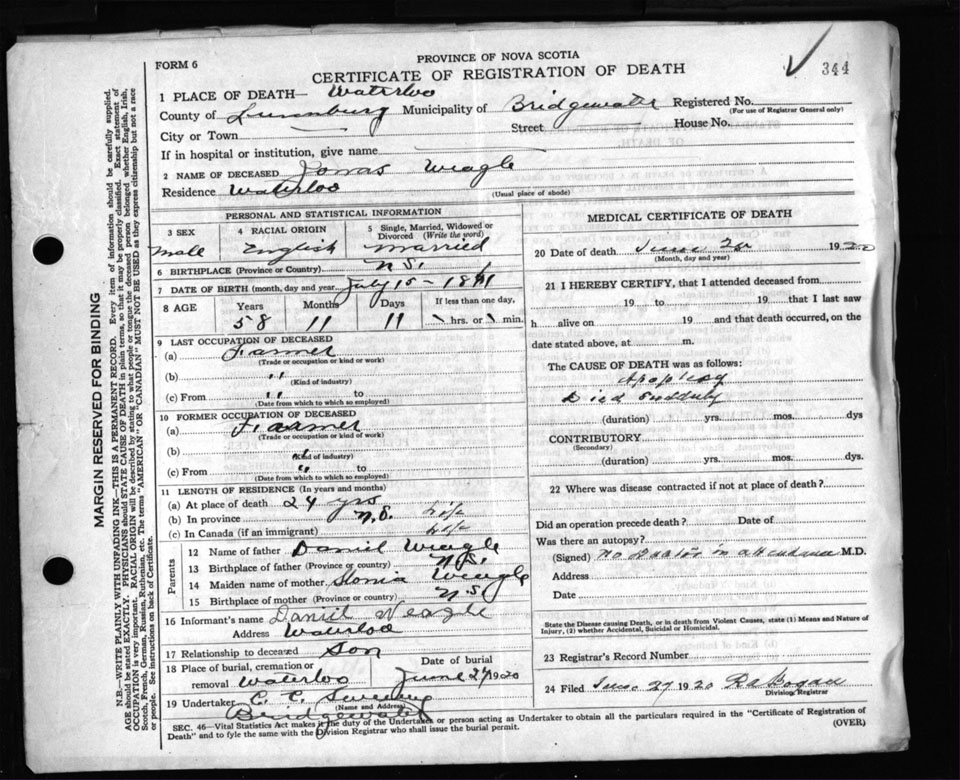 FORM 6
PROVINCE OF NOVA SCOTIA
CERTIFICATE OF REGISTRATION OF DEATH
344
1 PLACE OF DEATH— Waterloo
County of Lunenburg Municipality of Bridgewater Registered No.
(For use of Registrar General only)
City or Town Street House No.
If in hospital or institution, give name
2 NAME OF DECEASED Jonas Weagle
Residence Waterloo
(Usual place of abode)
PERSONAL AND STATISTICAL INFORMATION
3 SEX
Male
4 RACIAL ORIGIN
English
5 Single, Married, Widowed or Divorced (Write the word)
Married
6 BIRTHPLACE (Province or Country) N.S.
7 DATE OF BIRTH (month, day and year) July 15 - 1861
8 AGE Years Months Days If less than one day,
58 11 11 \ hrs. or \ min.
9 LAST OCCUPATION OF DECEASED
(a) Farmer
(Trade or occupation or kind or work)
(b) "
(Kind of industry)
(c) From " to
(Date from which to which so employed)
10 FORMER OCCUPATION OF DECEASED
(a) Faarmer
(Trade or occupation or kind or work)
(b)
(Kind of industry)
(c) From " to
(Date from which to which so employed)
11 LENGTH OF RESIDENCE (In years and months)
(a) At place of death 24 yrs
(b) In province N.S. life
(c) In Canada (if an immigrant) life
Parents
12 Name of father Daniel Weagle
13 Birthplace of father (Province or country) N.S.
14 Maiden name of mother Weagle
15 Birthplace of mother (Province or country) N.S
16 Informant's name Daniel Weagle
Address Waterloo
17 Relationship to deceased Son
18 Place of burial, cremation or removal Waterloo
Date of burial
June 27 1920
19 Undertaker C. C. Sweeney
(Name and Address)
Bridgewater
MEDICAL CERTIFICATE OF DEATH
20 Date of death June 1920
(Month, day and year)
21 I HEREBY CERTIFY, that I attended deceased from
19 to 19 that I last saw
h alive on 19 and that death occurred, on the
date stated above, at m.
The CAUSE OF DEATH was as follows:
Apoplexy
Died Suddenly
(duration) yrs. mos. dys
CONTRIBUTORY
(Secondary)
(duration) yrs. mos. dys.
22 Where was disease contracted if not at place of death?
Did an operation precede death? Date of
Was there an autopsy?
(Signed) No Doctor in attendance M.D.
Address
Date
State the Disease causing Death, or in death from Violent Causes, state (1) Means and Nature of
Injury, (2) whether Accidental, Suicidal or Homicidal.
23 Registrar's Record Number
24 Filed June 27 1920
Division Registrar
SEC. 46—Vital Statistics Act makes it the duty of the Undertaker or person acting as Undertaker to obtain all the particulars required in the "Certificate of Registration of
Death" and to fyle the same with the Division Registrar who shall issue the burial permit. (OVER)
MARGIN RESERVED FOR BINDING
N.B.—WRITE PLAINLY WITH UNFADING INK—THIS IS A PERMANENT RECORD. Every item of information should be carefully supplied.
AGE should be stated EXACTLY. PHYSICIANS should STATE CAUSE OF DEATH in plain terms, so that it may be properly classified. Exact statement of
OCCUPATION is very important. RACIAL ORIGIN will be described by stating to what people or tongue the deceased person belonged whether English, Irish,
Scotch, French, German, Russian, Ruthenian, etc. The terms "AMERICAN" OR "CANADIAN" MUST NOT BE USED as they express citizenship but not a race
or people. See instructions on back of Certificate.